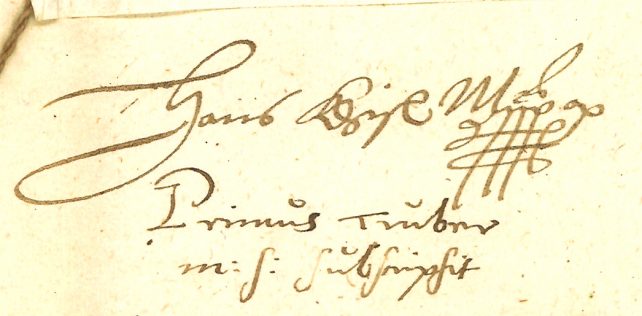 Hans Kisl
Primus Truber
m: s: subscripsit